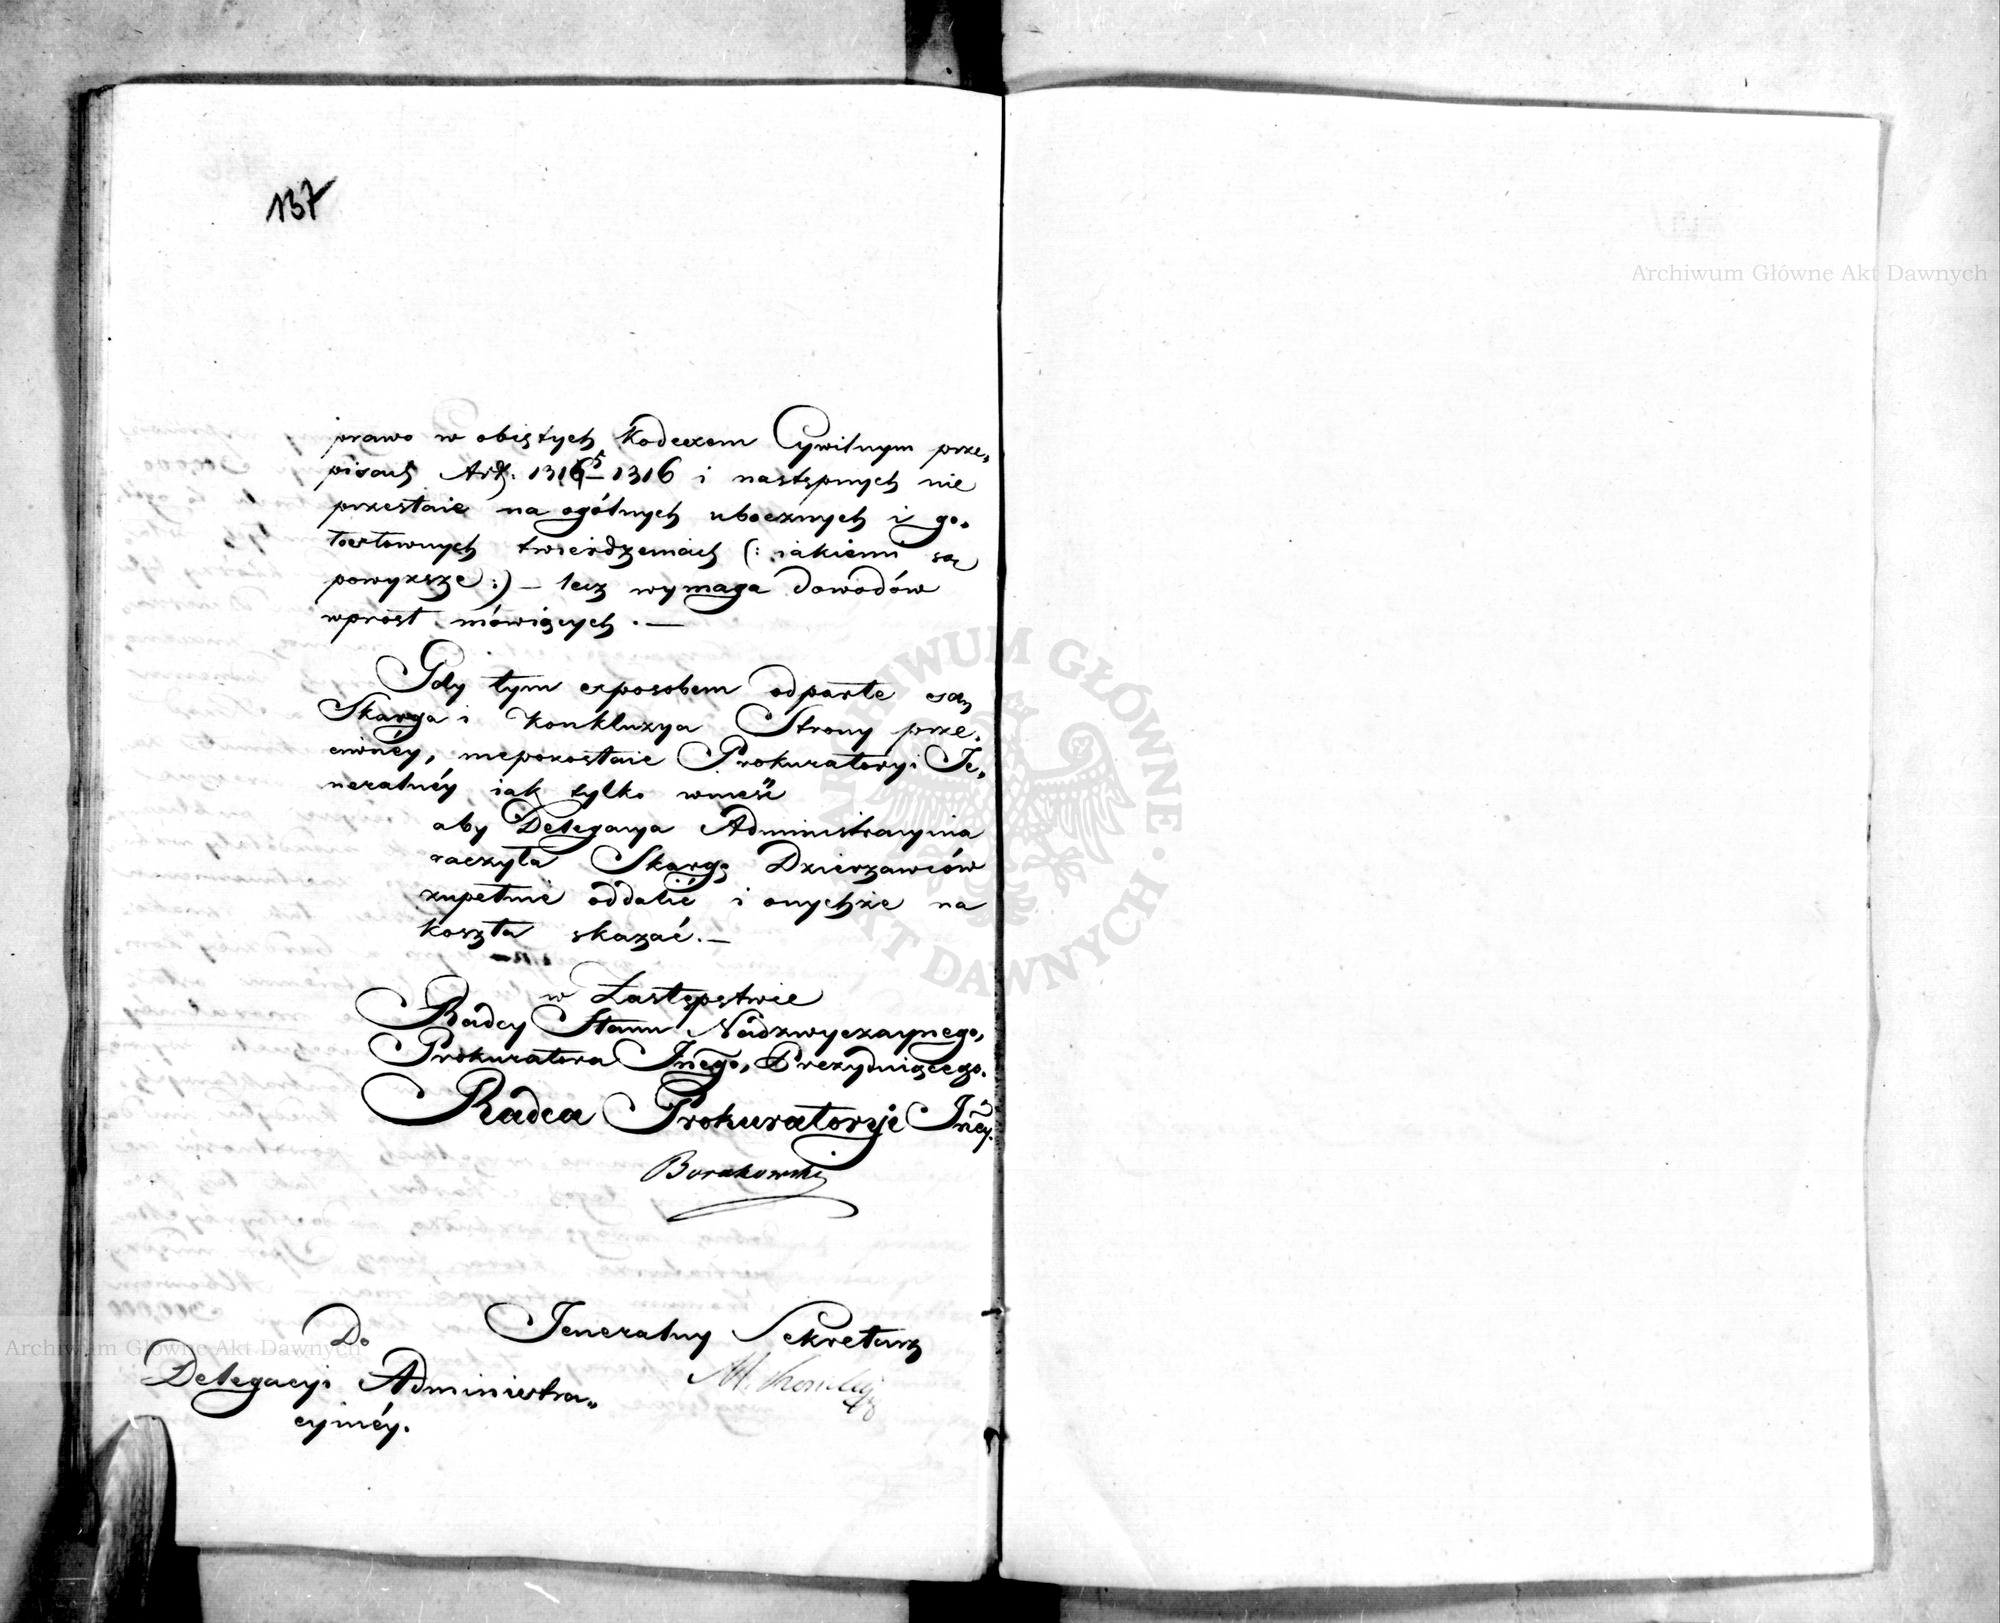 137
prawo w obiętych Kodexem Cywilnym prze„
pisach Art. 1315 – 1316 i następnych nie
przestaie na ogólnych ubocznych i go„
łosłownych twierdzeniach (: iakiemi są
powyższe :) – lecz wymaga dowodów
wprost mówiących. —
Gdy tym sposobem odparte są
Skarga i Konkluzya Strony prze„
ciwnéy, niepozostaie Prokuratoryi Je„
neralnéy iak tylko wnieść
aby Delegacya Administracyina
raczyła Skargę Dzierzawców
zupełnie oddalić i onychże na
koszta skazać. —
w Zastępstwie
Radcy Stanu Nadzwyczaynego,
Prokuratora Jnego, Prezyduiącego.
Radca Prokuratoryi Jnéy.
Borakowski
Jeneralny Sekretarz
M.
Do
Delegacyi Administra„
cyinéy.
Archiwum Główne Akt Dawnych
Archiwum Główne Akt Dawnych
ARCHIWUM GŁÓWNE AKT DAWNYCH